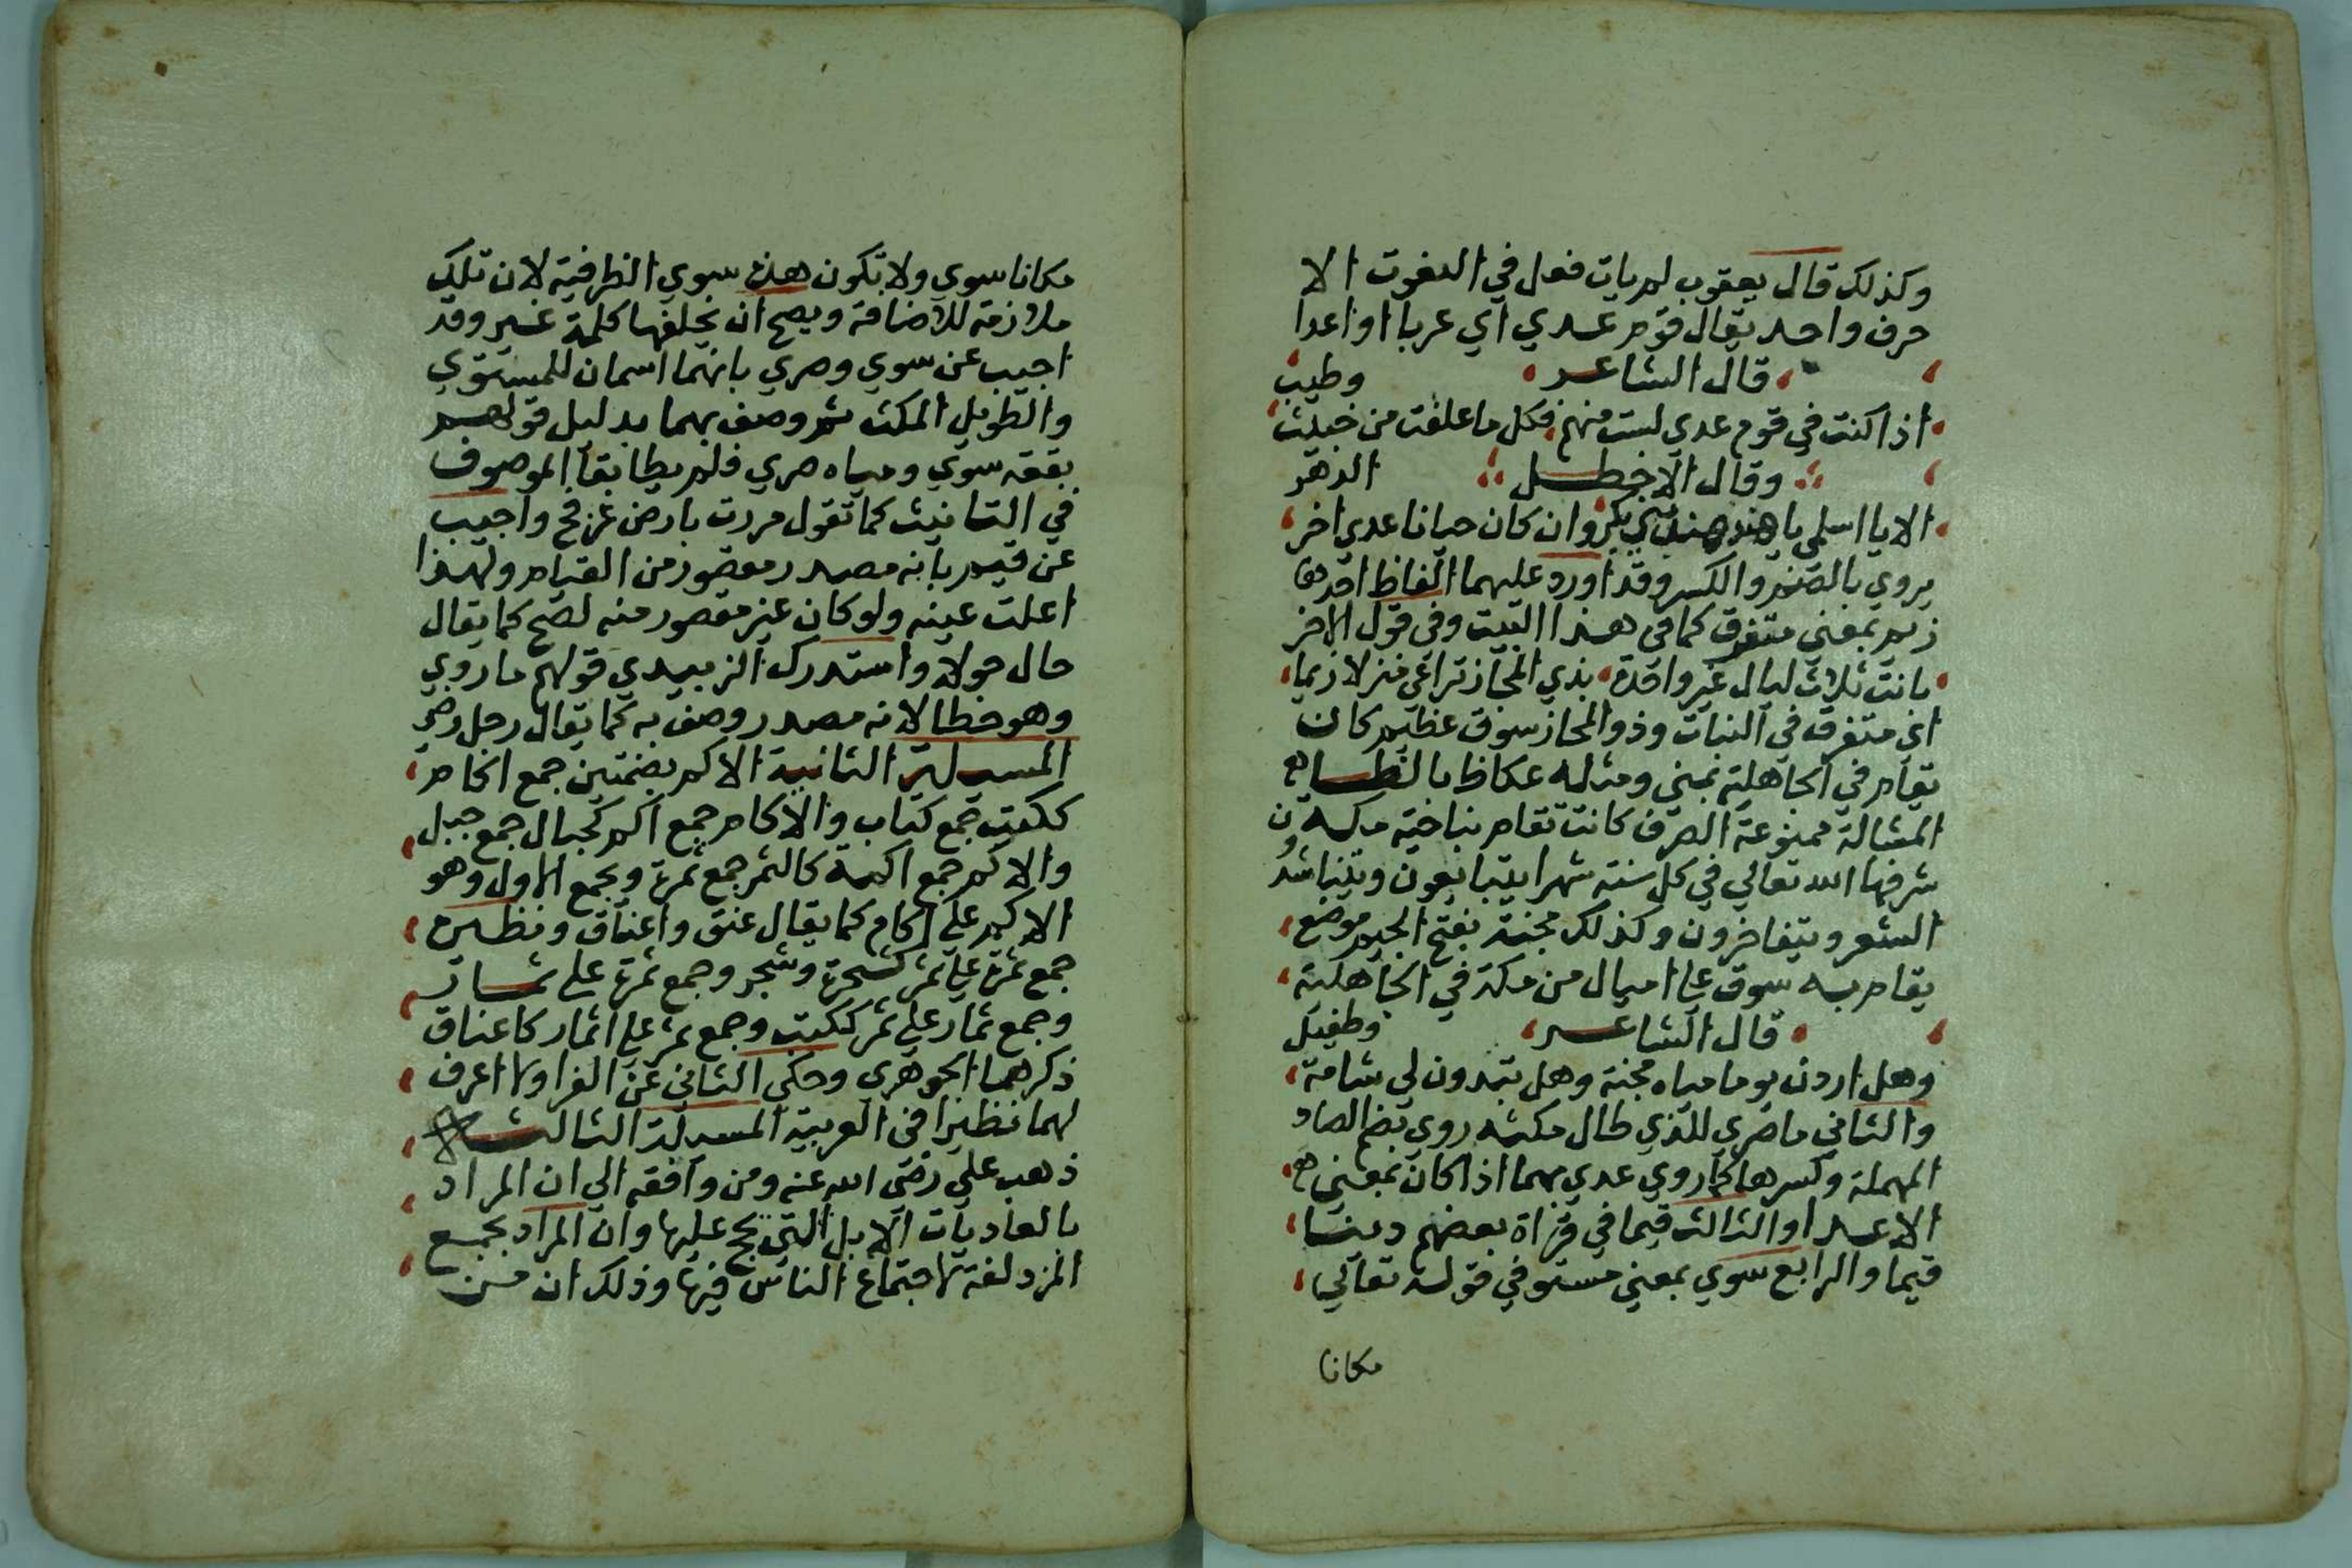 وكذلك قال يعقوب لم يات فعل في النعوت الا
حرف واحد يقال قوم عدي اي عربا او اعدا
قال الشاعر وطيب
اذا كنت في قوم عدي لست منهم فكل ما علفت من خبيث
وقال الاخطل الدهر
الا يا اسلمي يا هند هند بني بكر وان كان حيانا عدي اخر
يروي بالضم والكسر وقد اورد عليهما الفاظ احدها
زيم بمعني متفرق كما في هذا البيت وفي قول الاخر
باتت ثلاث ليال غير واحدة بذي المجاز تراعي منزلا زيما
اي متفرق في النبات وذو المجاز سوق عظيم كان
تقام في الجاهلية بمني ومثله عكاظ بالظا
المشالة ممنوعة الصرف كانت تقام بناحية مكه
شرفها الله تعالي في كل سنة شهرا يتبايعون ويتناشدون
الشعر ويتفاخرون وكذلك مجنة بفتح الجيم موضع
يقام به سوق علي اميال من مكة في الجاهلية
قال الشاعر وطفيل
وهل اردن يوما مياه مجنة وهل تبدون لي شامة
والثاني ما صري للذي طال مكثه روي بضم الصاد
المهملة وكسرها كما روي عدي بهما اذا كان بمعني
الاعدا والثالث قيما في قراة بعضهم دينا
قيما والرابع سوي بمعني مستو في قوله تعالي
مكانا
مكانا سوي ولا تكون هذه سوي الظرفية لان تلك
ملازمة للاضافة ويصح ان يخلفها كلمة غير وقد
اجيب عن سوي وصري بانهما اسمان للمستوي
والطويل المكث ثم وصف بهما بدليل قولهم
بقعة سوي ومياه صري فلم يطابقا الموصوف
في التانيث كما تقول مررت بارض عرفج واجيب
عن قيم بانه مصدر مقصور من القيام ولهذا
اعلت عينه ولو كان غير مقصور منه لصح كما يقال
حال حولا واستدرك الزبيدي قولهم ما روي
وهو خطا لانه مصدر وصف به كما يقال رجل رضي
المسيلة الثانية الاكم بضمتين جمع اكام
ككتب جمع كتاب والاكام جمع اكم كجبال جمع جبل
والاكم جمع اكمة كالثمر جمع ثمرة ويجمع الاول وهو
الاكم علي اكام كما يقال عنق واعناق ونظيره
جمع ثمرة علي ثمر كشجرة وشجر وجمع ثمرة علي ثمار
وجمع ثمار علي ثمر ككتب وجمع ثمر علي اثمار كاعناق
ذكرهما الجوهري وحكي الثاني عن الفرا ولا اعرف
لهما نظيرا في العربية المسيلة الثالثة
ذهب علي رضي الله عنه ومن وافقه الي ان المراد
بالعاديات الابل التي يحج عليها وان المراد بجمع
المزدلفة لاجتماع الناس فيها وذلك ان من